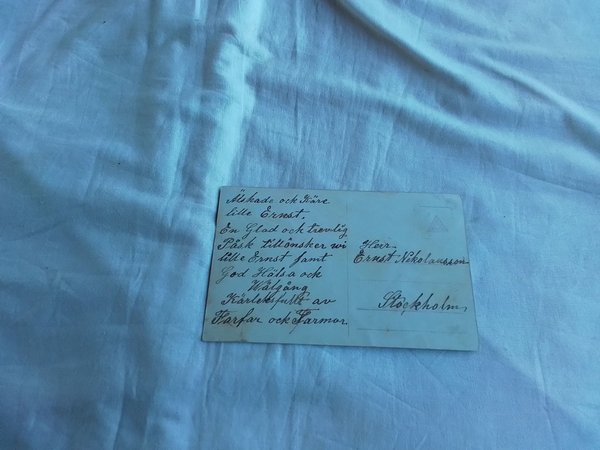 Älskade och Käre
lille Ernst,
En Glad och trevlig
Påsk tillönsker wi
lille Ernst samt
God Hälsa och
Wälgång
Kärleksfullt av
Farfar och Farmor
Herr
Ernst Nikolausson
Stockholm,